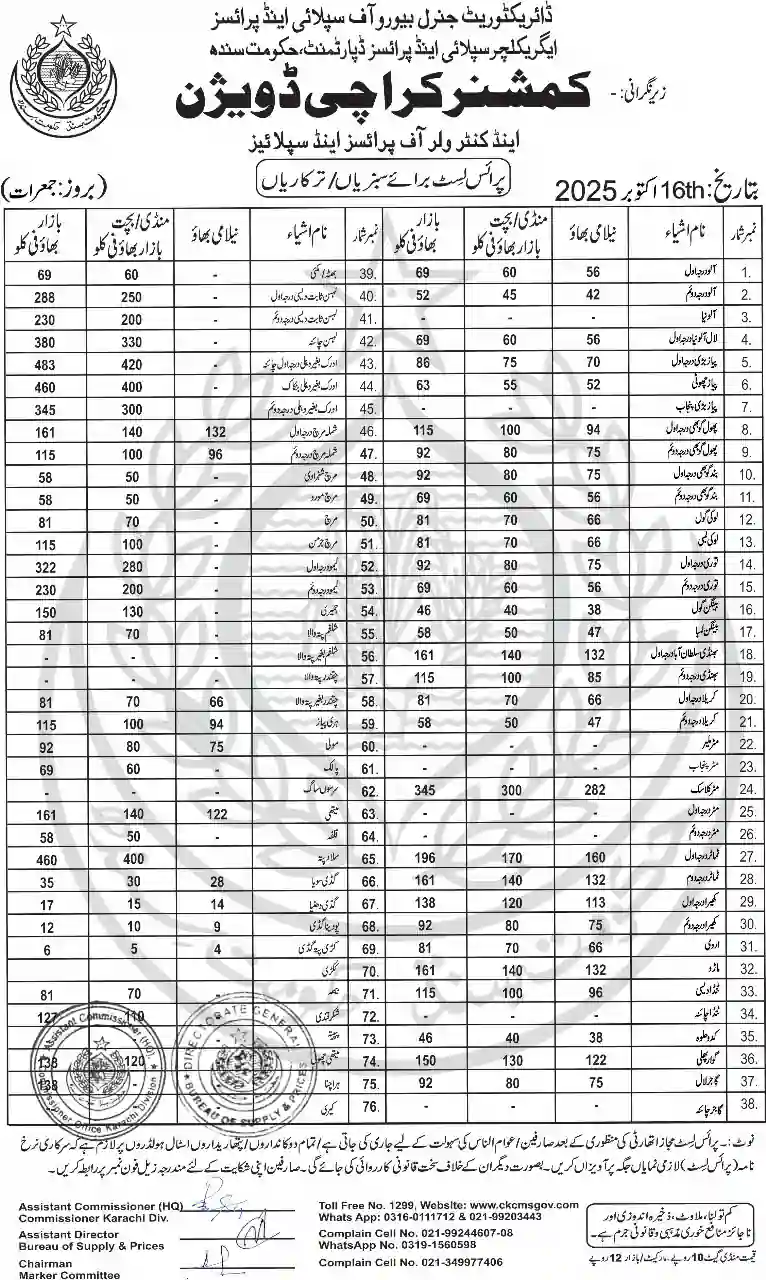 ڈائریکٹوریٹ جنرل بیورو آف سپلائی اینڈ پرائسز
ایگریکلچر سپلائی اینڈ پرائسز ڈپارٹمنٹ، حکومت سندھ
زیر نگرانی:- کمشنر کراچی ڈویژن
اینڈ کنٹرولر آف پرائسز اینڈ سپلائیز
بتاریخ: 16th اکتوبر 2025 پرائس لسٹ برائے سبزیاں/ترکاریاں (بروز: جمعرات)
نمبر شمار نام اشیاء نیلامی بھاؤ منڈی/بچت بازار بھاؤ فی کلو بازار بھاؤ فی کلو نمبر شمار نام اشیاء نیلامی بھاؤ منڈی/بچت بازار بھاؤ فی کلو بازار بھاؤ فی کلو
1. آلو درجہ اول 56 60 69 39. بھٹہ/مکئی - 60 69
2. آلو درجہ دوئم 42 45 52 40. لہسن ثابت دیسی درجہ اول - 250 288
3. آلو نیا - - - 41. لہسن ثابت دیسی درجہ دوئم - 200 230
4. لال آلو نیا درجہ اول 56 60 69 42. لہسن چائنہ - 330 380
5. پیاز بڑی درجہ اول 70 75 86 43. ادرک بغیر دھلی درجہ اول چائنہ - 420 483
6. پیاز چھوٹی 52 55 63 44. ادرک بغیر دھلی بنکاک - 400 460
7. پیاز بڑی پنجاب - - - 45. ادرک بغیر دھلی درجہ دوئم - 300 345
8. پھول گوبھی درجہ اول 94 100 115 46. شملہ مرچ درجہ اول 132 140 161
9. پھول گوبھی درجہ دوئم 75 80 92 47. شملہ مرچ درجہ دوئم 96 100 115
10. بند گوبھی درجہ اول 75 80 92 48. مرچ شہزادی - 50 58
11. بند گوبھی درجہ دوئم 56 60 69 49. مرچ مورو - 50 58
12. لوکی گول 66 70 81 50. مرچ - 70 81
13. لوکی لمبی 66 70 81 51. مرچ جرمن - 100 115
14. توری درجہ اول 75 80 92 52. لیمو درجہ اول - 280 322
15. توری درجہ دوئم 56 60 69 53. لیمو درجہ دوئم - 200 230
16. بینگن گول 38 40 46 54. - 130 150
17. بینگن لمبا 47 50 58 55. شلغم پتہ والا - 70 81
18. بھنڈی سلطان آباد درجہ اول 132 140 161 56. شلغم بغیر پتہ والا - - -
19. بھنڈی درجہ دوئم 85 100 115 57. چقندر پتہ والا - - -
20. کریلا درجہ اول 66 70 81 58. چقندر بغیر پتہ والا 66 70 81
21. کریلا درجہ دوئم 47 50 58 59. ہری پیاز 94 100 115
22. مٹر ملیر - - - 60. مولی 75 80 92
23. مٹر پنجاب - - - 61. پالک - 60 69
24. مٹر کلاسک 282 300 345 62. سرسوں ساگ - - -
25. مٹر درجہ اول - - - 63. میتھی 122 140 161
26. مٹر درجہ دوئم - - - 64. - 50 58
27. ٹماٹر درجہ اول 160 170 196 65. سلاد پتہ - 400 460
28. ٹماٹر درجہ دوم 132 140 161 66. گڈی سویا 28 30 35
29. کھیرا درجہ اول 113 120 138 67. گڈی دھنیا 14 15 17
30. کھیرا درجہ دوئم 75 80 92 68. پودینا گڈی 9 10 12
31. اروی 66 70 81 69. کڑی پتہ گڈی 4 5 6
32. 132 140 161 70. ککڑی
33. ٹنڈا دیسی 96 100 115 71. - 70 81
34. ٹنڈا چائنہ - - - 72. شکر قندی 110 127
35. کدو حلوہ 38 40 46 73. پپیتہ
36. گوار پھلی 122 130 150 74. 120 138
37. گاجر لال 75 80 92 75. 138
38. گاجر چائنہ - - - 76. کیری
Assistant Commissioner (HQ)
Commissioner Office Karachi Division
DIRECTORATE GENERAL
BUREAU OF SUPPLY & PRICES
نوٹ:- پرائس لسٹ مجاز اتھارٹی کی منظوری کے بعد صارفین/عوام الناس کی سہولت کے لیے جاری کی جاتی ہے/تمام دوکانداروں/پتھاریداروں اسٹال ہولڈروں پر لازم ہے کہ سرکاری نرخ
نامہ (پرائس لسٹ) لازمی نمایاں جگہ پر آویزاں کریں۔ بصورت دیگر ان کے خلاف سخت قانونی کارروائی کی جائے گی۔ صارفین اپنی شکایت کے لئے مندرجہ زیل فون نمبر پر رابطہ کریں۔
Assistant Commissioner (HQ)
Commissioner Karachi Div.
Assistant Director
Bureau of Supply & Prices
Chairman
Marker Committee
Toll Free No. 1299, Website: www.ckcmsgov.com
Whats App: 0316-0111712 & 021-99203443
Complain Cell No. 021-99244607-08
WhatsApp No. 0319-1560598
Complain Cell No. 021-349977406
کم تولنا، ملاوٹ، ذخیرہ اندوزی اور
ناجائز منافع خوری مذہبی و قانونی جرم ہے۔
قیمت منڈی گیٹ 10 روپے، مارکیٹ/بازار 12 روپے